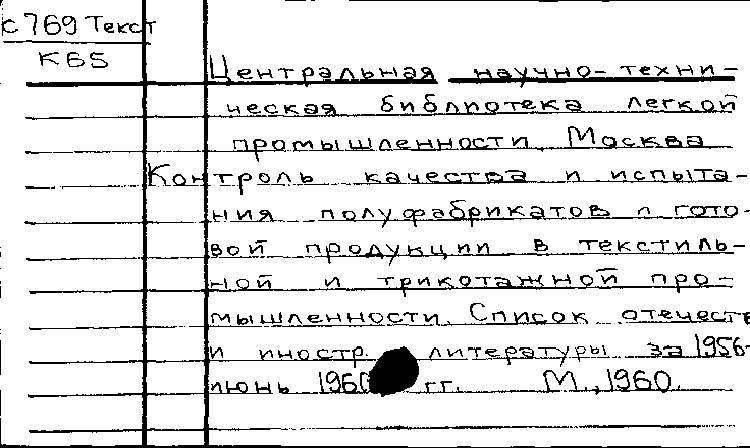 с 769 Текст
К65
Центральная научно-техни-
ческая библиотека легкой
промышленности, Москва
Контроль качества и испыта-
ния полуфабрикатов и гото-
вой продукции в текстиль-
ной и трикотажной про-
мышленности. Список отечеств
и иностр. литературы за 1956-
июнь 1960 гг. М., 1960.